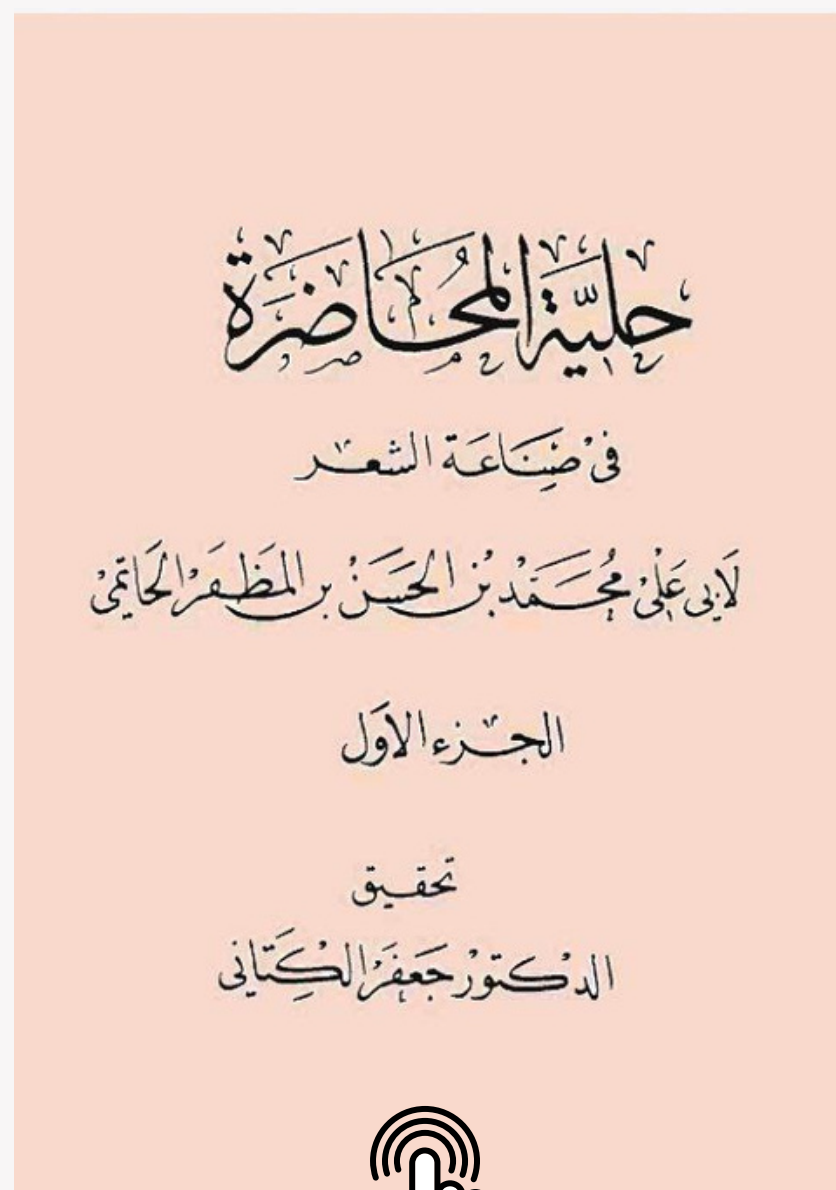 حلية المحاضرة
في صناعة الشعر
لأبي علي محمد بن الحسن بن المظفر الحاتمي
الجزء الأول
تحقيق
الدكتور جعفر الكتاني